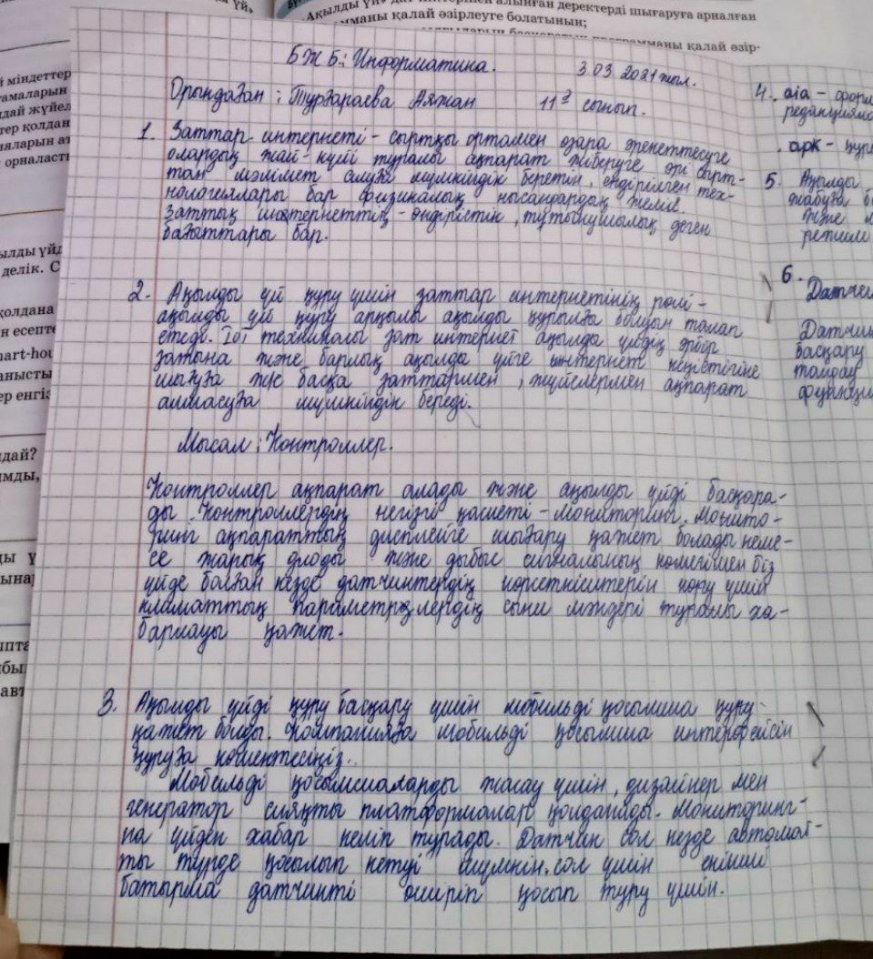 үй»
датчиктерінен алынған деректерді шығаруға арналған
«Ақылды үй»
программаны қалай әзірлеуге болатынын;
басқаратын программаны қалай әзір-
й міндеттер
гамаларын
дай жүйел
тер қолдан
орналасты
ылды үйд
делік. С
қолдана
н есепте
mart-hou
анысты
ер енгіз
дай?
ымды,
ды ү
ына
БЖБ: Информатика. 3.03.2021 жыл.
Орындаған: Турғараева Аяжан 11 "з" сынып.
1. Заттар интернеті - сыртқы ортамен өзара әрекеттесуге
олардың жай-күйі туралы ақпарат жіберуге әрі сырт-
тан мәлімет алуға мүмкіндік беретін, ендірілген тех-
нологиялары бар физикалық нысандардың желісі.
Заттық интернеттің - өндірістік, тұтынушылық деген
бағыттары бар.
2. Ақылды үй құру үшін заттар интернетінің рөлі -
ақылды үй құру арқылы ақылды құрылғы болуын талап
етеді. IoT техникасы зат интернет ақылды үйдің әрбір
затына және барлық ақылды үйге интернет кеңістігіне
шығуға ж/е басқа заттармен, жүйелермен ақпарат
алмасуға мүмкіндік береді.
Мысал: Контроллер.
Контроллер ақпарат алады және ақылды үйді басқара-
ды. Контроллердің негізгі қасиеті - мониторинг. Монито-
ринг ақпараттың дисплейге шығару қажет болады неме-
се жарық диоды және дыбыс сигналының көмегімен біз
үйде болған кезде датчиктердің көрсеткіштерін көру үшін
климаттық параметрлердің сыни мәндері туралы ха-
барлауы қажет.
3. Ақылды үйді құру басқару үшін мобильді қосымша құру
қажет болды. Компанияға мобильді қосымша интерфейсін
құруға көмектесіңіз.
Мобильді қосымшаларды жасау үшін, дизайнер мен
генератор сияқты платформалар қолданылды. Мониторинг-
ке үйден хабар келіп тұрады. Датчик сол кезде автомат-
ты түрде қосылып кетуі мүмкін, сол үшін екінші
батырма датчикті өшіріп қосып тұру үшін.
4. aia - форм
редакциялау
apk - құр
5. Ақылды
жабуға б
және
режим
6.
Датчик
Датчик
басқару
талдау
функция